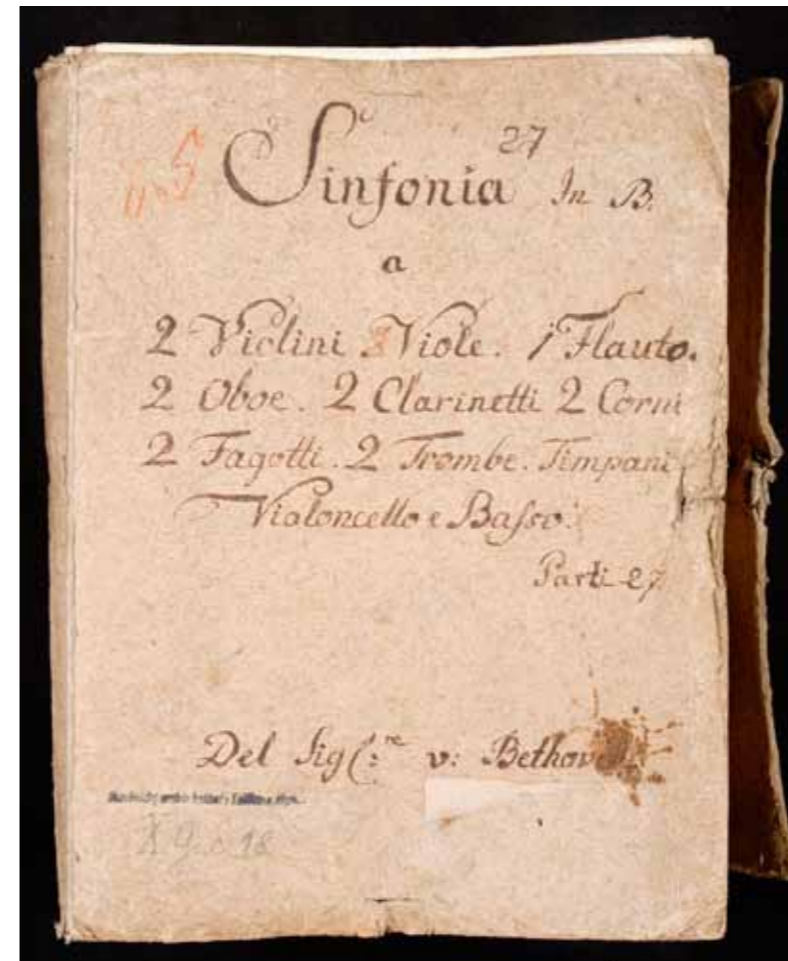 27
N. 5
Sinfonia In B.
a
2 Violini 2 Viole. 1 Flauto.
2 Oboe. 2 Clarinetti 2 Corni
2 Fagotti. 2 Trombe. Timpani
Violoncello e Baſso.
Parti 27
Del Sig(:re v: Bethoven
X G. c. 18